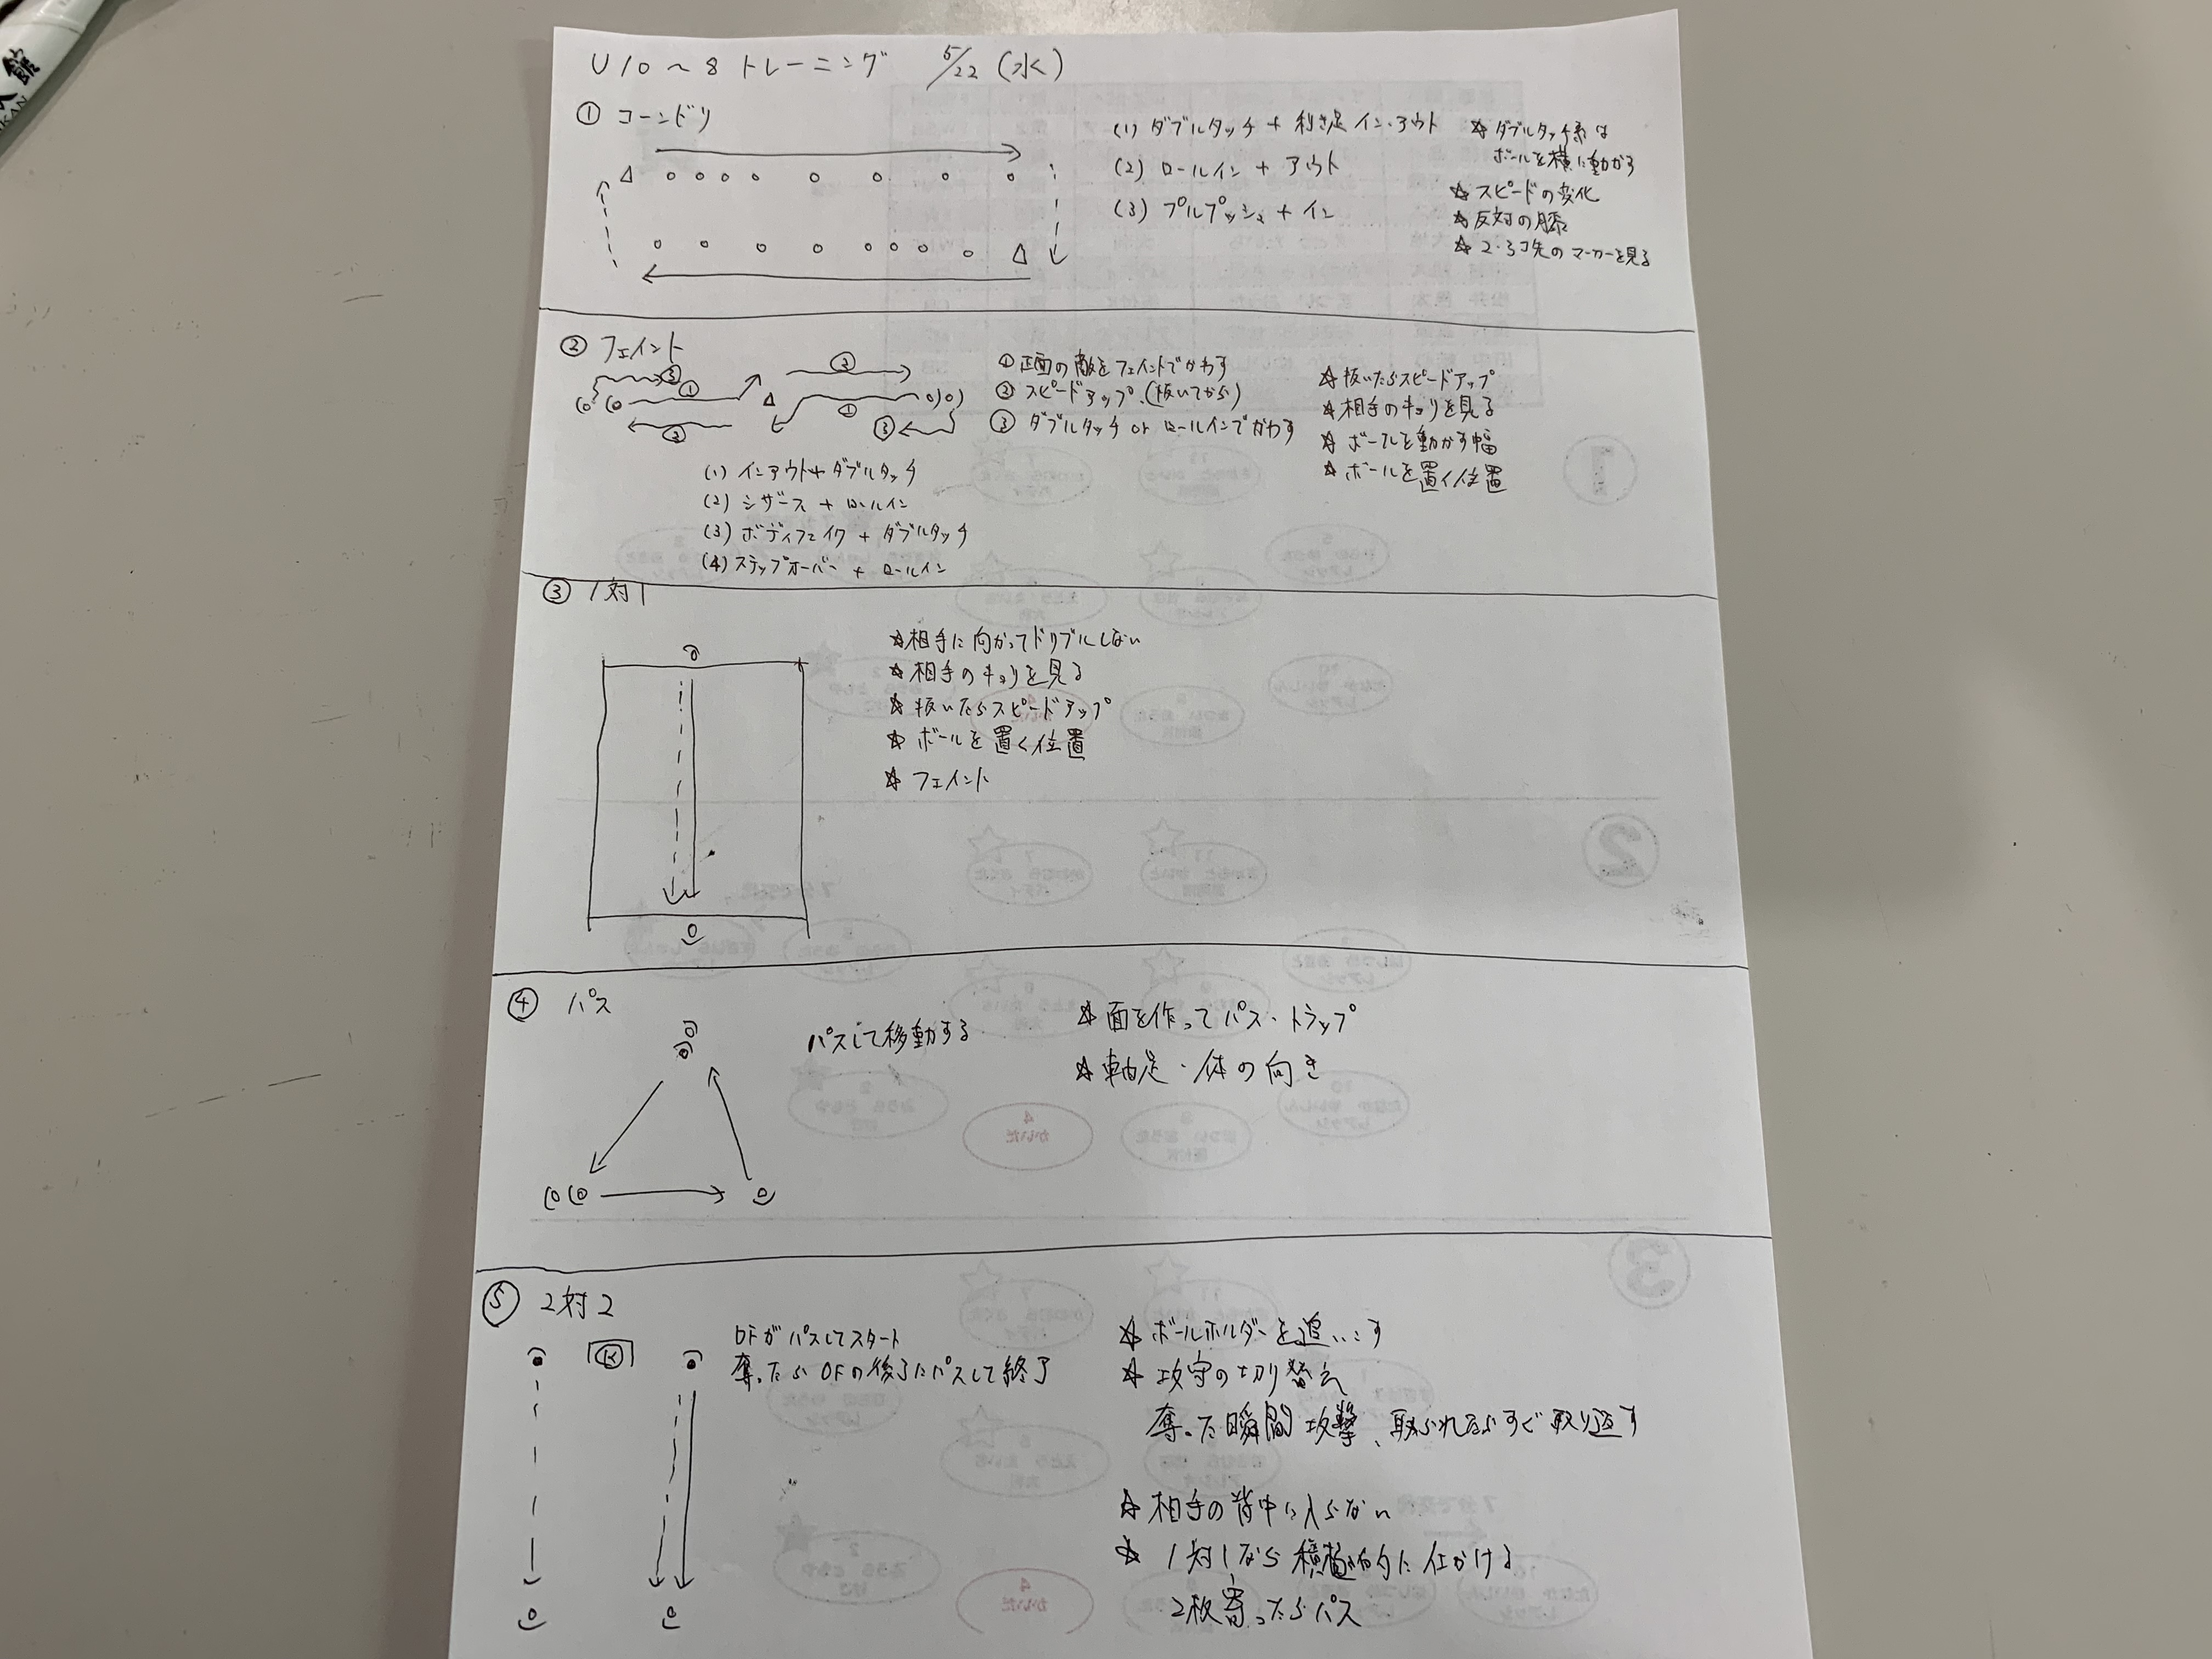 U10～8 トレーニング 5/22 (水)
① コーンドリ
(1) ダブルタッチ + 利き足 イン・アウト
(2) ロールイン + アウト
(3) プルプッシュ + イン
☆ ダブルタッチ系は
ボールを横に動かす
☆ スピードの変化
☆ 反対の膝
☆ 2・3コ先のマーカーを見る
② フェイント
③
①
②
②
①
③
① 正面の敵をフェイントでかわす
② スピードアップ (抜いてから)
③ ダブルタッチ or ロールインでかわす
☆ 抜いたらスピードアップ
☆ 相手のキョリを見る
☆ ボールを動かす幅
☆ ボールを置く位置
(1) インアウト+ダブルタッチ
(2) シザース + ロールイン
(3) ボディフェイク + ダブルタッチ
(4) ステップオーバー + ロールイン
③ 1対1
☆ 相手に向かってドリブルしない
☆ 相手のキョリを見る
☆ 抜いたらスピードアップ
☆ ボールを置く位置
☆ フェイント
④ パス
パスして移動する
☆ 面を作ってパス・トラップ
☆ 軸足・体の向き
⑤ 2対2
K
DFがパスしてスタート
奪ったらOFの後ろにパスして終了
☆ ボールホルダーを追いこす
☆ 攻守の切り替え
奪った瞬間攻撃、取られたらすぐ取り返す
☆ 相手の背中に入らない
☆ 1対1なら積極的に仕かける
2枚寄ったらパス
館
KAN
1
2
3